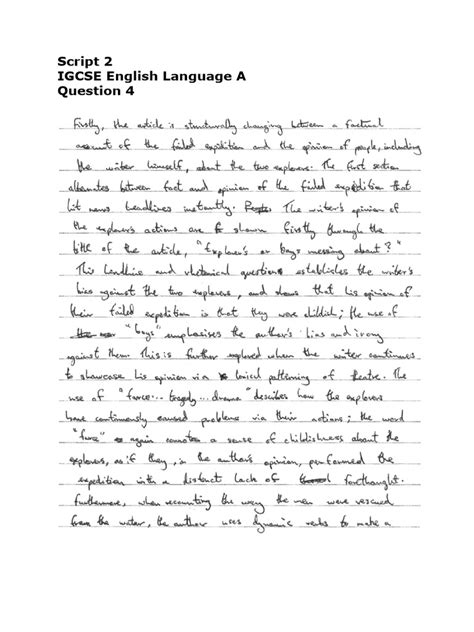 Script 2
IGCSE English Language A
Question 4
Firstly, the article is structurally changing between a factual
account of the failed expidition and the opinion of people, including
the writer himself, about the two explorers. The first section
alternates between fact and opinion of the failed expedition that
hit news headlines instantly. The writer's opinion of
the explorer's actions are shown firstly through the
title of the article, "Explorers or boys messing about?"
This headline and rhetorical question establishes the writer's
bias against the two explorers, and shows that his opinion of
their failed expedition is that they were childish; the use of
"boys" emphasises the author's bias and irony
against them. This is further explored when the writer continues
to showcase his opinion via lexical patterning of theatre. The
use of "farce... tragedy... drama" describes how the explorers
have continuously caused problems via their actions; the word
"farce" again connotes a sense of childishness about the
explorers, as if they, in the author's opinion, performed the
expedition with a distinct lack of forthought.
Furthermore, when recounting the way the men were rescued
from the water, the author uses dynamic verbs to make a